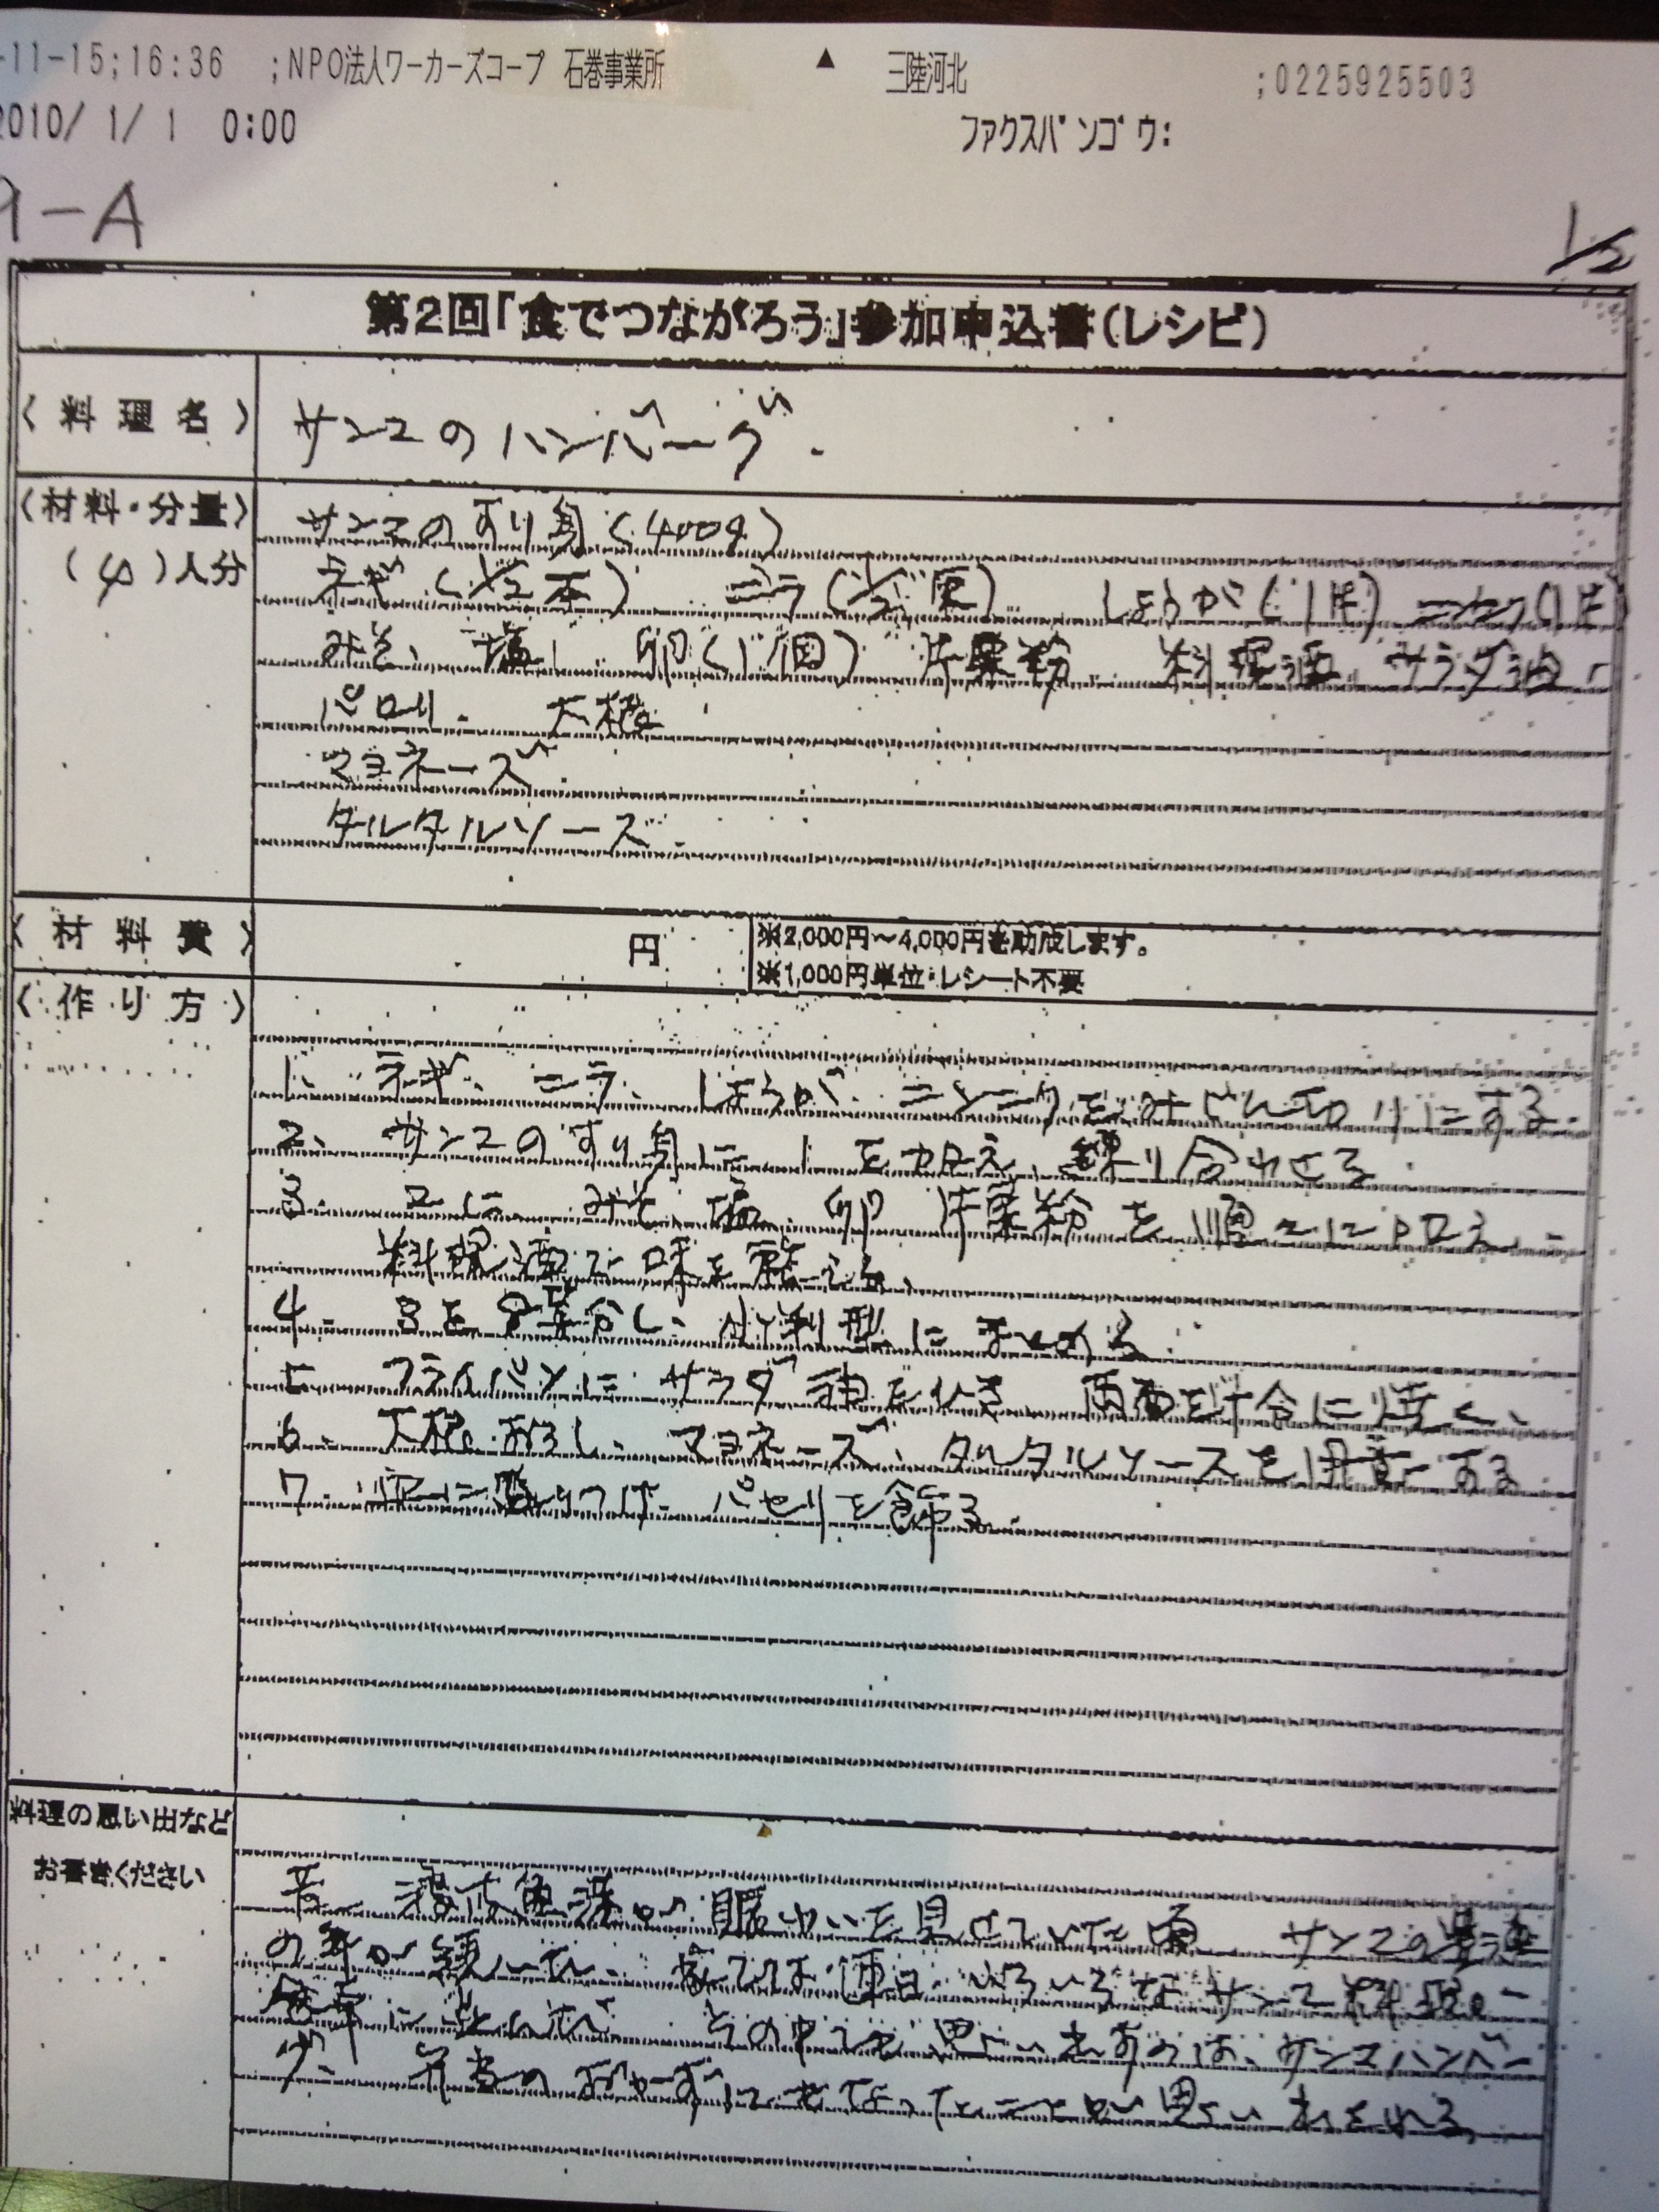 -11-15;16:36 ;NPO法人ワーカーズコープ 石巻事業所 ▲ 三陸河北 ;0225925503
2010/ 1/ 1 0:00 ファクスバンゴウ:
9-A
1/2
第2回「食でつながろう」参加申込書(レシピ)
〈料理名〉 サンマのハンバーグ.
〈材料・分量〉 サンマのすり身(400g)
(4)人分 ネギ(1/2本) ニラ(1/2束) しょうが(1片)
みそ、塩、卵(1個) 片栗粉 料理酒、サラダ油、
パセリ. 大根
マヨネーズ.
タルタルソース.
〈材料費〉 円 ※2,000円〜4,000円を助成します。
※1,000円単位・レシート不要
〈作り方〉
1. ネギ、ニラ、しょうが、ニンニクをみじん切りにする.
2. サンマのすり身に1を加え、練り合わせる.
3. 2に、みそ、塩、卵、片栗粉を順々に加え、
料理酒で味を整える.
4. 3を8等分し、小判型にまとめる.
5. フライパンにサラダ油をひき 両面を丁合に焼く、
6. 大根おろし、マヨネーズ、タルタルソースを用意する
7. 皿に盛りつけ、パセリを飾る.
料理の思い出など
お書きください
昔、 が賑わいを見せていた頃 サンマの
の が続いた. 家では毎日いろいろなサンマ料理が
その中でも思い出すのは、サンマハンバー
グ、